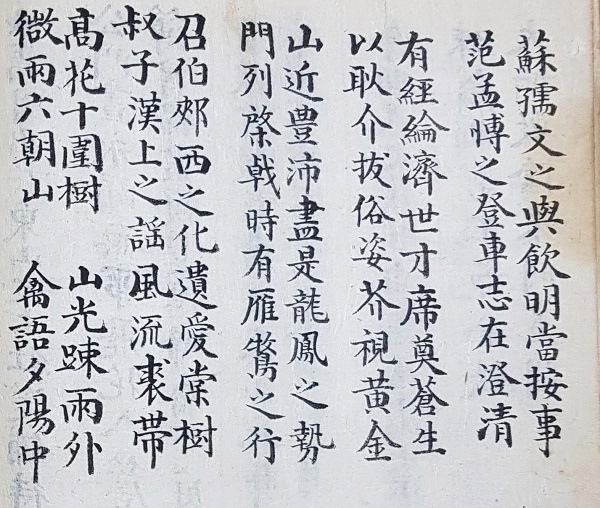 蘇孺文之與飲明當按事
范孟博之登車志在澄清
有經綸濟世才席奠蒼生
以耿介拔俗姿芥視黃金
山近豊沛盡是龍鳳之勢
門列棨戟時有雁鶩之行
召伯郊西之化遺愛棠樹
叔子漢上之謡風流裘帶
髙花十圍樹
微雨六朝山
山光踈雨外
禽語夕陽中